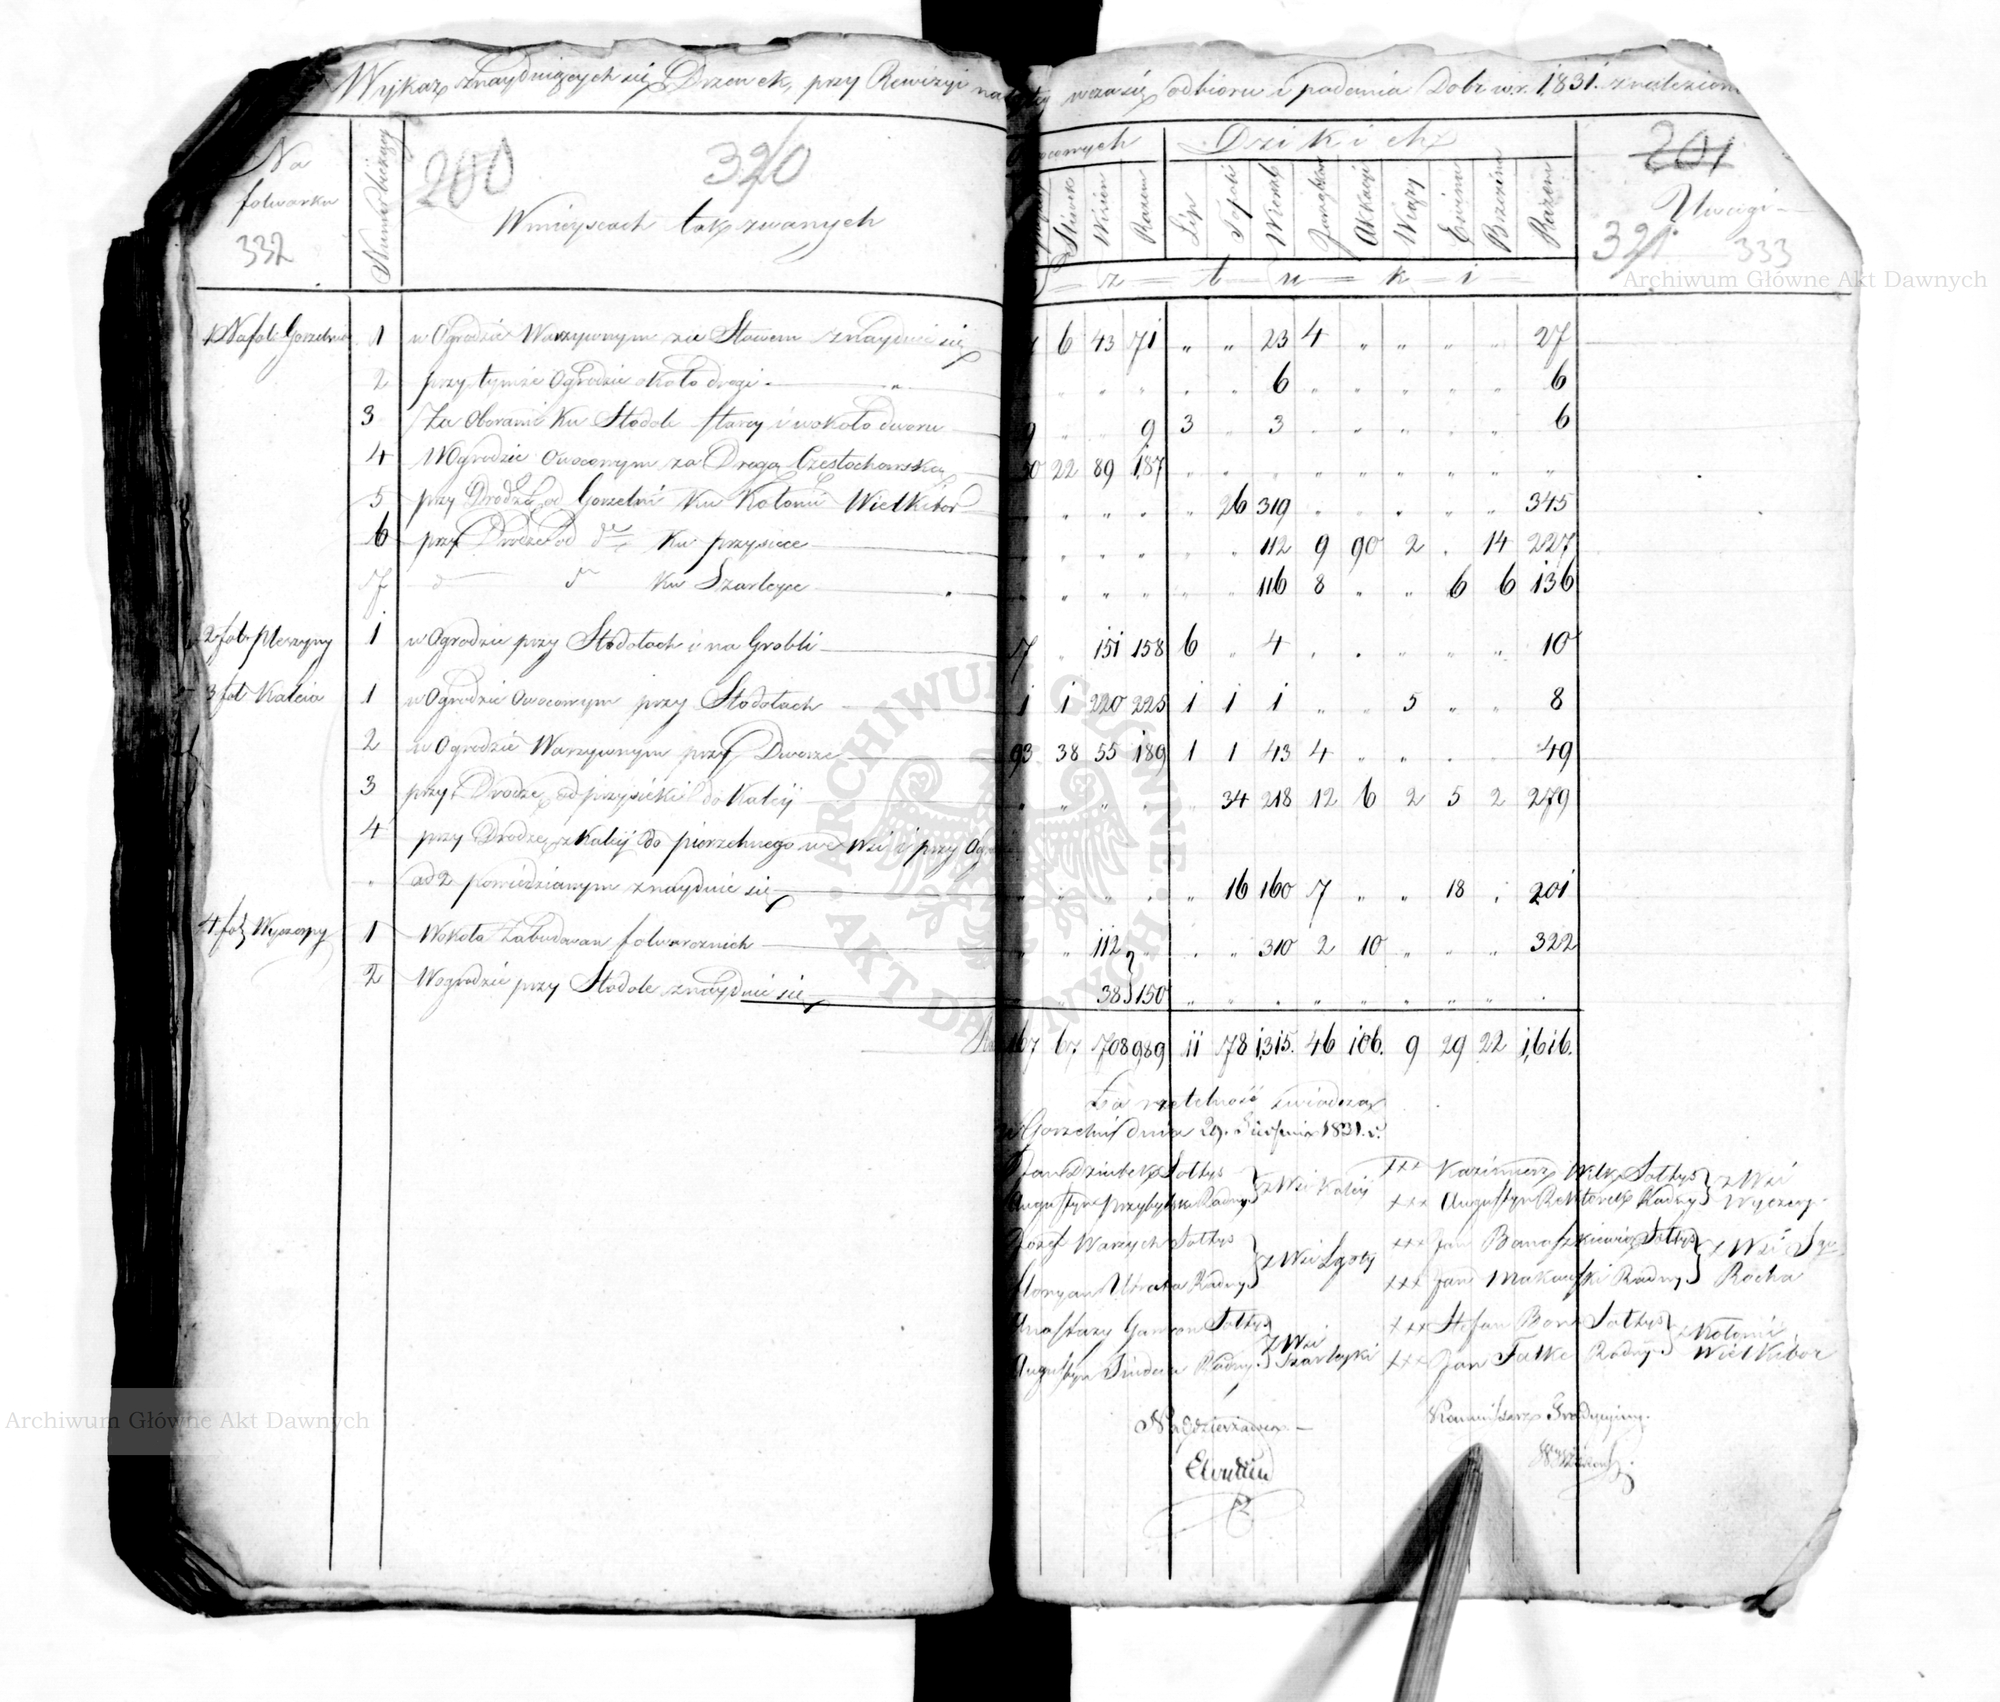 Wykaz znayduiących się Drzewek, przy Rewizyi wczasie odbioru i podania Dobr w r. 1831. znalezion
Na folwarku
Numer bieżący
200 320
Wmieyscach tak zwanych
332
Owocowych
Dzikich
201
Uwagi
321 333
Śliwek Wisien Razem Lip Topoli Wierzb Akacyi Wiązy Brzezina Razem
S z t u k i
1 Nafol: Gorzelnia 1 w Ogrodzie Warzywnym za Stawem znayduie się 6 43 71 " " 23 4 " " " " 27
2 przy tymże Ogrodzie około drogi " 6 6
3 Za Oborami ku Stodole starey i wokoło dworu 9 " " 9 3 " 3 6
4 W Ogrodzie Owocowym za Drogą Częstochowską 22 89 187
5 przy Drodze od Gorzelni ku Kolonii Wielkibor 26 319 345
6 przy Drodze od dto ku przysiece 112 9 90 2 . 14 227
7 d dto ku Szarleyce 116 8 " " 6 6 136
2 fol: 1 w Ogrodzie przy Stodołach i na Grobli 7 " 151 158 6 " 4 10
3 fol Kaleia 1 w Ogrodzie Owocowym przy Stodołach 1 1 220 225 1 1 1 " " 5 " " 8
2 w Ogrodzie Warzywnym przy Dworze 93 38 55 189 1 1 43 4 49
3 przy Drodze od przysieki do Kaleij 34 218 12 6 2 5 2 279
4 przy Drodze z Kaleij do pierzchnego we Wsi i przy Ogr
ad 2 powiedzianym znayduie się 16 160 7 " " 18 201
4 fol Wyczerpy 1 Wokoło Zabudowan folwarcznich 112 310 2 10 322
2 Wogrodzie przy Stodole znayduie się 38 150
167 67 708 989 11 78 1,315. 46 106. 9 29 22 1,616.
Za rzetelność zwiadcza
w Gorzelni dnia 29. Sierpnia 1831. r.
Jan Dziubek Sołtys
Augustyn Przybyła Radny z Wsi Kaleij
xxx Kazimierz Wilk Sołtys
xxx Augustyn Rektorek Radny z Wsi Wyczerp.
Jozef Warzych Sołtys
Floryan Utrata Radny z Wsi Lgoty
xxx Jan Banaszkiewicz Sołtys
xxx Jan Makowski Radny z Wsi Sgo Rocha
Anastazy Gawron Sołtys
Augustyn Radny z Wsi Szarleyki
xxx Stefan Bor Sołtys
xxx Jan Falke Radny z Kolonii Wielkibor
Naddzierżawca
Kommissarz Tradycyiny.
Archiwum Główne Akt Dawnych
Archiwum Główne Akt Dawnych
ARCHIWUM GŁÓWNE AKT DAWNYCH